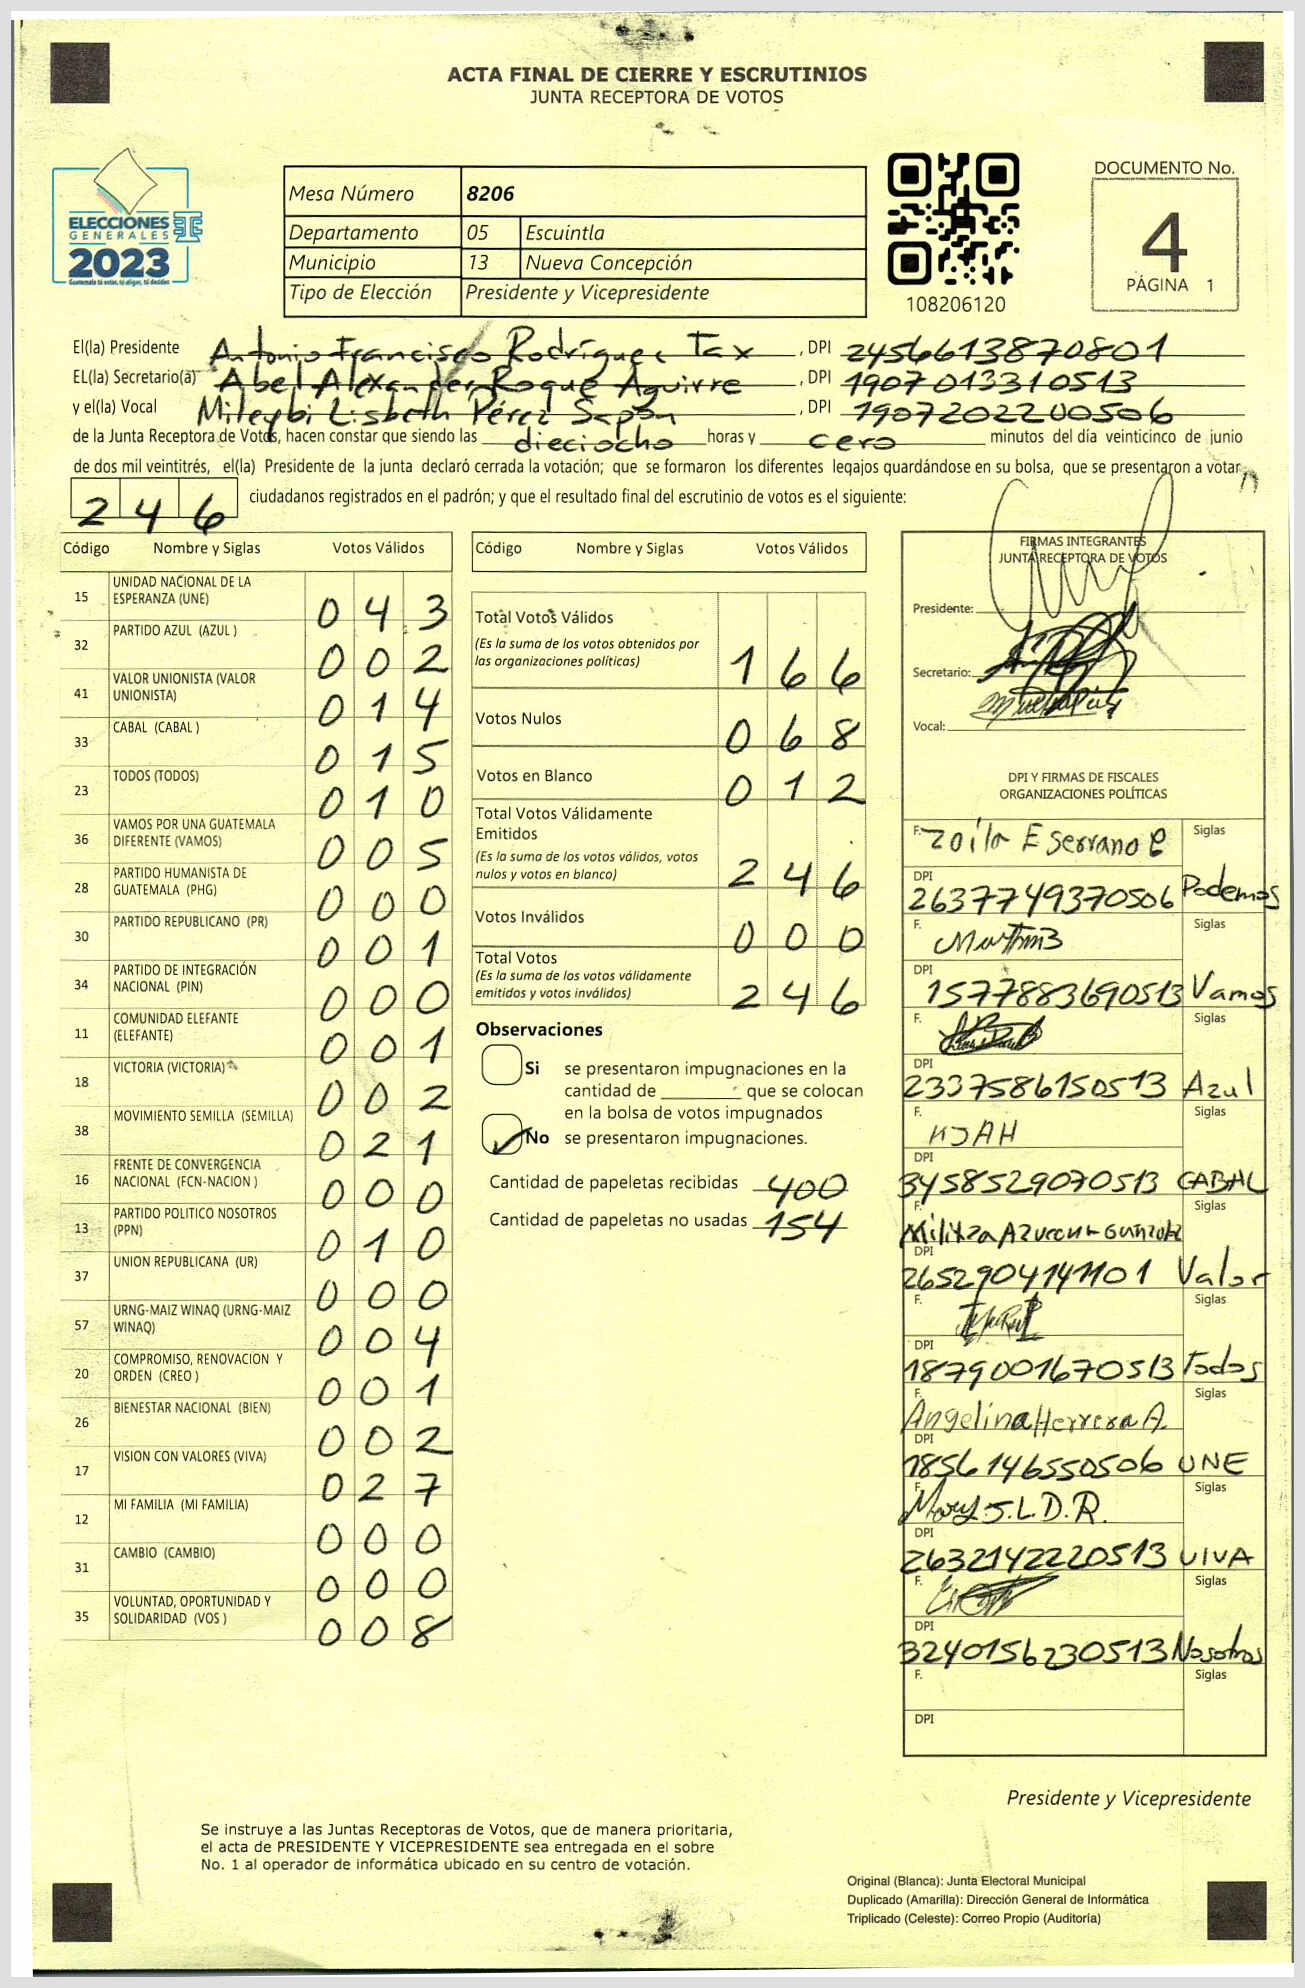 ACTA FINAL DE CIERRE Y ESCRUTINIOS
JUNTA RECEPTORA DE VOTOS
ELECCIONES
GENERALES
2023
Guatemala tú votas, tú eliges, tú decides
Mesa Número 8206
Departamento 05 Escuintla
Municipio 13 Nueva Concepción
Tipo de Elección Presidente y Vicepresidente
108206120
DOCUMENTO No.
4
PÁGINA 1
El(la) Presidente Antonio Francisco Rodríguez Tax , DPI 2456613870801
EL(la) Secretario(a) Abel Alexander Roque Aguirre , DPI 1907013310513
y el(la) Vocal Mileybi Lisbeth Pérez Sapón , DPI 1907202200506
de la Junta Receptora de Votos, hacen constar que siendo las dieciocho horas y cero minutos del día veinticinco de junio
de dos mil veintitrés, el(la) Presidente de la junta declaró cerrada la votación; que se formaron los diferentes legajos guardándose en su bolsa, que se presentaron a votar
246 ciudadanos registrados en el padrón; y que el resultado final del escrutinio de votos es el siguiente:
Código Nombre y Siglas Votos Válidos
15 UNIDAD NACIONAL DE LA ESPERANZA (UNE) 043
32 PARTIDO AZUL (AZUL ) 002
41 VALOR UNIONISTA (VALOR UNIONISTA) 014
33 CABAL (CABAL ) 015
23 TODOS (TODOS) 010
36 VAMOS POR UNA GUATEMALA DIFERENTE (VAMOS) 005
28 PARTIDO HUMANISTA DE GUATEMALA (PHG) 000
30 PARTIDO REPUBLICANO (PR) 001
34 PARTIDO DE INTEGRACIÓN NACIONAL (PIN) 000
11 COMUNIDAD ELEFANTE (ELEFANTE) 001
18 VICTORIA (VICTORIA) 002
38 MOVIMIENTO SEMILLA (SEMILLA) 021
16 FRENTE DE CONVERGENCIA NACIONAL (FCN-NACION ) 000
13 PARTIDO POLITICO NOSOTROS (PPN) 010
37 UNION REPUBLICANA (UR) 000
57 URNG-MAIZ WINAQ (URNG-MAIZ WINAQ) 004
20 COMPROMISO, RENOVACION Y ORDEN (CREO ) 001
26 BIENESTAR NACIONAL (BIEN) 002
17 VISION CON VALORES (VIVA) 027
12 MI FAMILIA (MI FAMILIA) 000
31 CAMBIO (CAMBIO) 000
35 VOLUNTAD, OPORTUNIDAD Y SOLIDARIDAD (VOS ) 008
Código Nombre y Siglas Votos Válidos
Total Votos Válidos
(Es la suma de los votos obtenidos por
las organizaciones políticas) 166
Votos Nulos 068
Votos en Blanco 012
Total Votos Válidamente
Emitidos
(Es la suma de los votos válidos, votos
nulos y votos en blanco) 246
Votos Inválidos 000
Total Votos
(Es la suma de los votos válidamente
emitidos y votos inválidos) 246
Observaciones
Si se presentaron impugnaciones en la
cantidad de ________ que se colocan
en la bolsa de votos impugnados
No se presentaron impugnaciones.
Cantidad de papeletas recibidas 400
Cantidad de papeletas no usadas 154
FIRMAS INTEGRANTES
JUNTA RECEPTORA DE VOTOS
Presidente:
Secretario:
Vocal:
DPI Y FIRMAS DE FISCALES
ORGANIZACIONES POLÍTICAS
F. Zoila E Serrano Siglas
DPI 2637749370506 Podemos
F. Siglas
DPI 1577883690513 Vamos
F. Siglas
DPI 2337586150513 Azul
F. KJAH Siglas
DPI 3458529070513 CABAL
F. Militza Azucena Siglas
DPI 2652904141101 Valor
F. Siglas
DPI 1879001670513 Todos
F. Angelina Herrera A. Siglas
DPI 1856146550506 UNE
F. Mary J.L.D.R. Siglas
DPI 2632142220513 VIVA
F. Siglas
DPI 3240156230513 Nosotros
F. Siglas
DPI
Presidente y Vicepresidente
Se instruye a las Juntas Receptoras de Votos, que de manera prioritaria,
el acta de PRESIDENTE Y VICEPRESIDENTE sea entregada en el sobre
No. 1 al operador de informática ubicado en su centro de votación.
Original (Blanca): Junta Electoral Municipal
Duplicado (Amarilla): Dirección General de Informática
Triplicado (Celeste): Correo Propio (Auditoría)